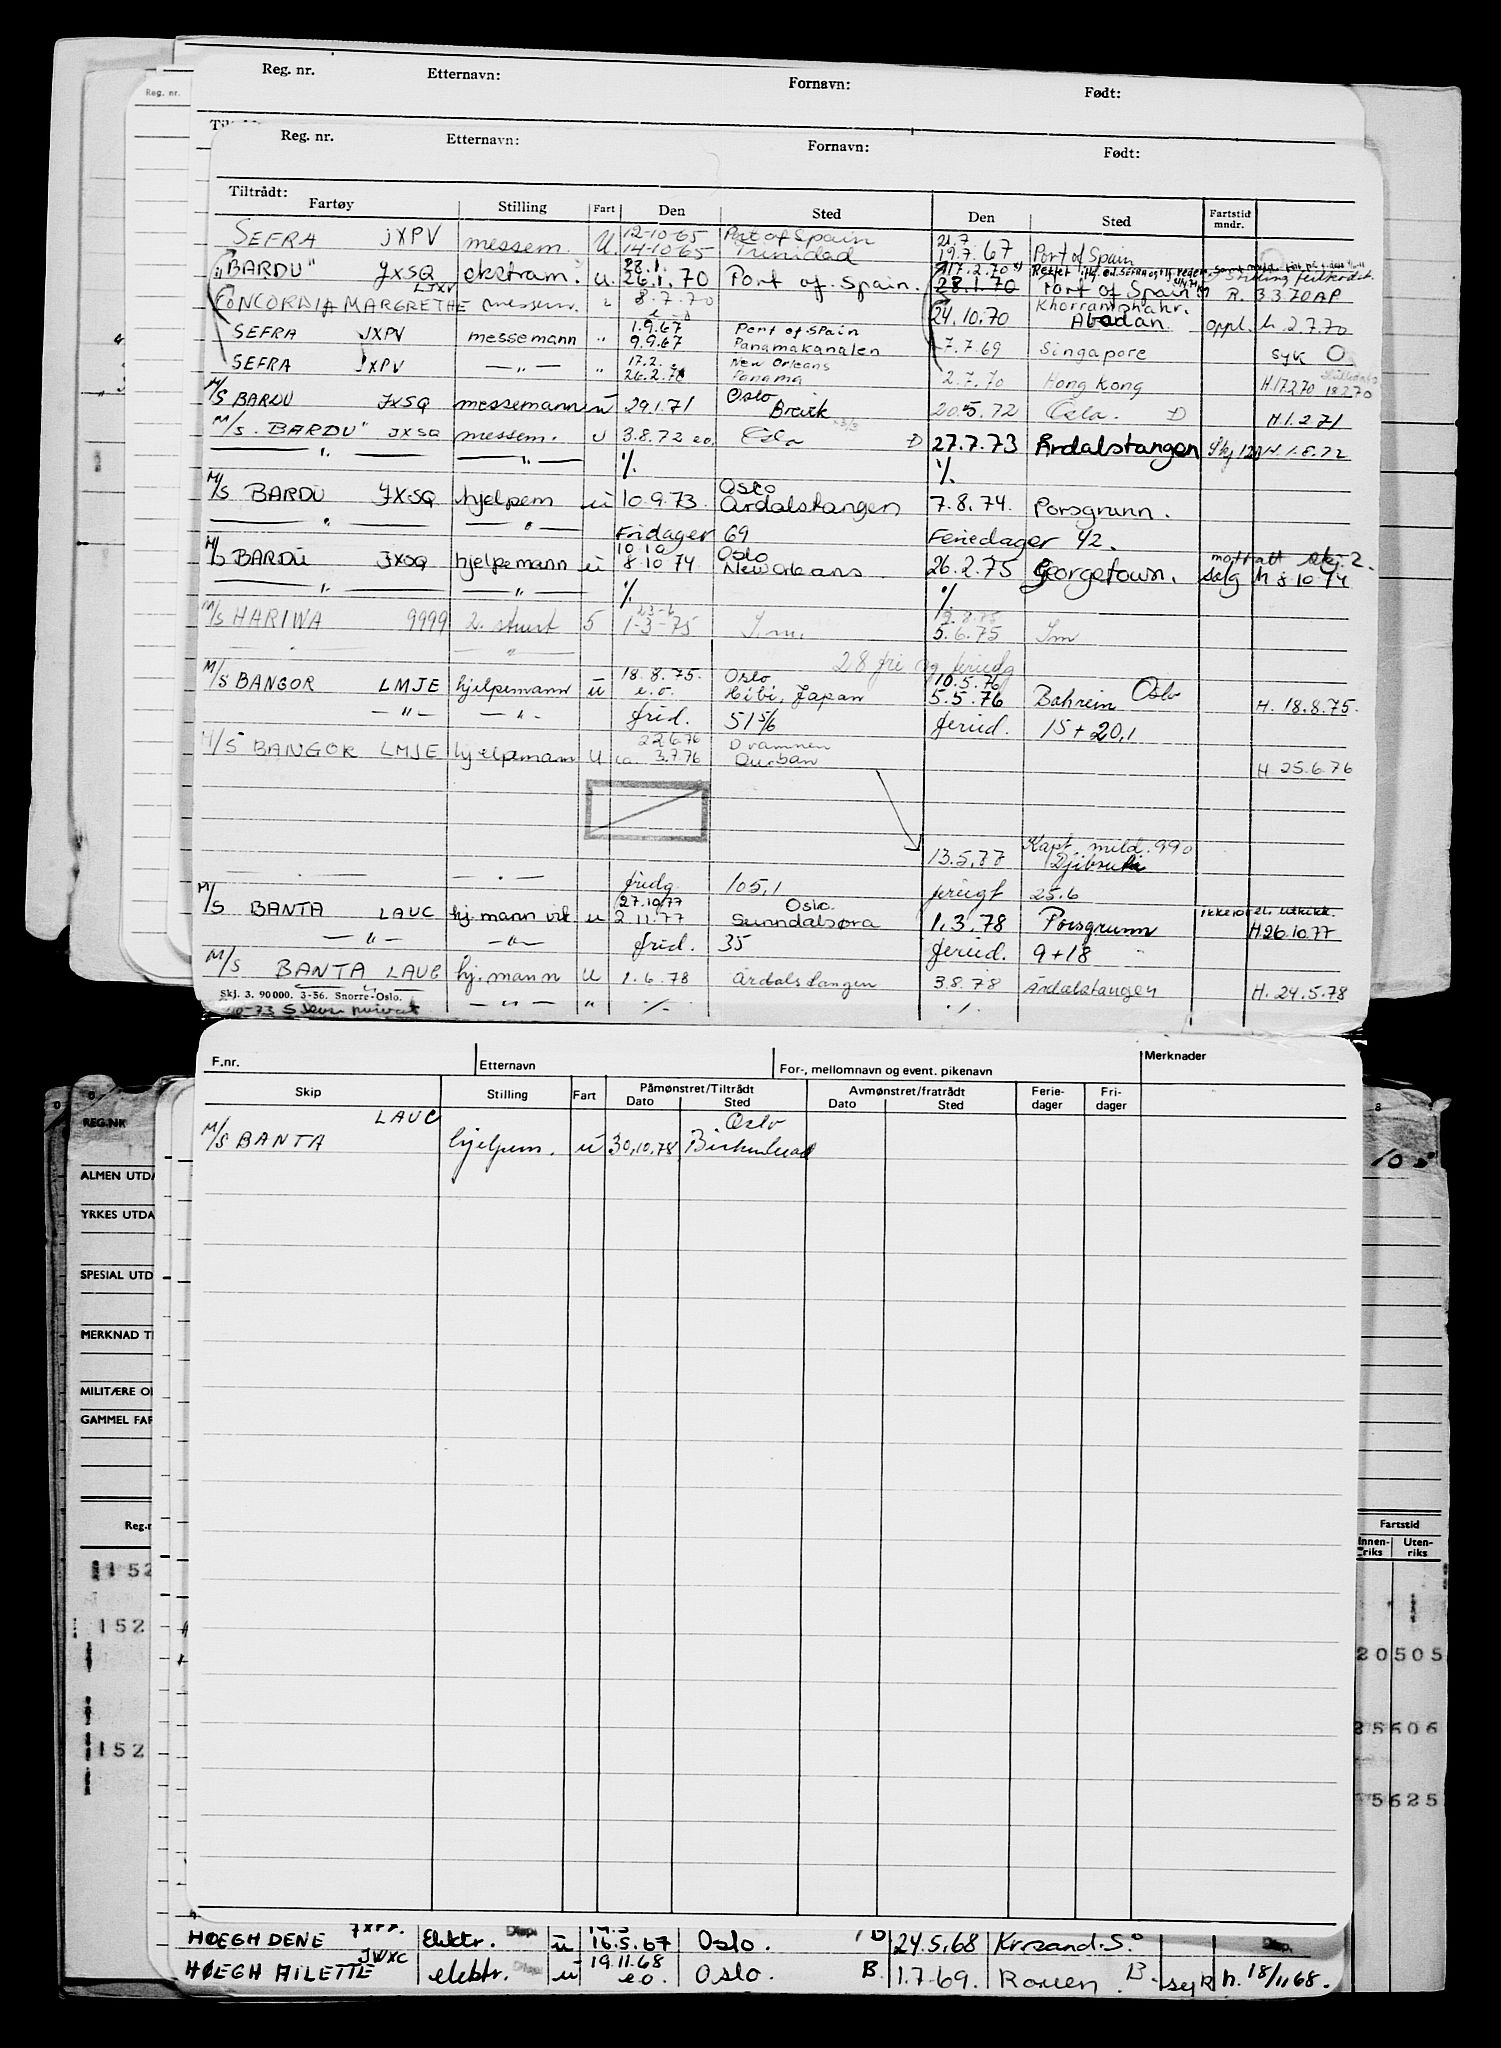 Reg. nr. Etternavn: Fornavn: Født:
Reg. nr.
Reg. nr. Etternavn: Fornavn: Født:
Tiltrådt:
Fartøy Stilling Fart Den Sted Den Sted Fartstid mndr.
12-10-65 Port of Spain 21.7
SEFRA JXPV messem. U 14-10-65 Trinidad 19.7.67 Port of Spain
28.1. 17.2.70
"BARDU" JXSQ ekstram. u. 26.1.70 Port of Spain. 28.1.70 Port of Spain R. 3370AP
LJXV Khorramshahr.
CONCORDIA MARGRETHE messem. " 8.7.70 24.10.70 Abadan. oppl. h 2.7.70
1.9.67 Port of Spain
SEFRA JXPV messemann " 9.9.67 Panamakanalen 7.7.69 Singapore syk
17.2. New Orleans
SEFRA JXPV — " — " 26.2.70 Panama 2.7.70 Hong Kong H.17270 18270
Oslo
M/S BARDU JXSQ messemann u 29.1.71 Brevik 20.5.72 Oslo. D H.1.2.71
M/S. BARDU" JXSQ messem. u 3.8.72 eo Oslo D 27.7.73 Årdalstangen H. 1.8.72
— " — — " — ·/. ·/.
Oslo
M/S BARDU JXSQ hjelpem u 10.9.73. Årdalstangen 7.8.74. Porsgrunn.
— " — — " — Fridager 69 Feriedager 42.
10 10 Oslo mottatt skj. 2.
M/S BARDU JXSQ hjelpemann u 8 10 74 New Orleans. 26.2.75 Georgetown. h 8 10 74
— " — — " — ·/. ·/.
23-6
M/S HARIWA 9999 2. stuert 5 1-3-75 I.m. 5.6.75 Im
— " — 28 fri og feriedg
18.8.75. Oslo 10.5.76
M/S BANGOR LMJE hjelpemann u e.o. Hibi, Japan 5.5.76 Bahrein Oslo H. 18.8.75.
— " — — " — frid. 51 5/6 feried. 15 + 20,1
22.6.76 Drammen
M/S BANGOR LMJE hjelpemann u ca. 3.7.76 Durban H 25.6.76
Kapt. meld. 990
13.5.77 Djibouti
— " — fridg 105,1 25.6
27.10.77 Oslo.
M/S BANTA LAUC hj. mann vik u 2.11.77 Sunndalsøra 1.3.78 Porsgrunn H26.10.77
— " — — " — frid. 35 feried. 9+18
M/S BANTA LAUC hj. mann u 1.6.78 Årdalstangen 3.8.78 Årdalstangen H. 24.5.78
— " — " ·/. ·/.
Skj. 3. 90 000. 3-56. Snorre-Oslo.
F.nr. Etternavn For-, mellomnavn og event. pikenavn Merknader
Skip Stilling Fart Påmønstret/Tiltrådt Avmønstret/fratrådt Ferie- dager Fri- dager
Dato Sted Dato Sted
LAUC Oslo
M/S BANTA hjelpem. u 30.10.78 Birkenhead
REG.NR
ALMEN UTDA
YRKES UTDA
SPESIAL UTD
MERKNAD T
MILITÆRE O
GAMMEL FAR
Reg.n
Fartstid
Innen- riks Uten- riks
152
152
152
20505
5606
5625
HØEGH DENE Elektr. Disp. u 16.5.67 Oslo. D 24.5.68 Kr.sand.S. Disp.
JWXC 19.11.68
HØEGH AILETTE elektr. Disp. u e.o. Oslo. B. 1.7.69. Rouen. B. syk h. 18/11 68.